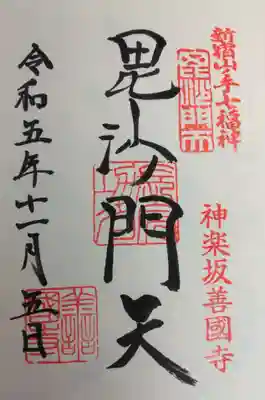 新宿山ノ手七福神
毘沙門天
神楽坂善國寺
毘沙門天
令和五年十一月五日